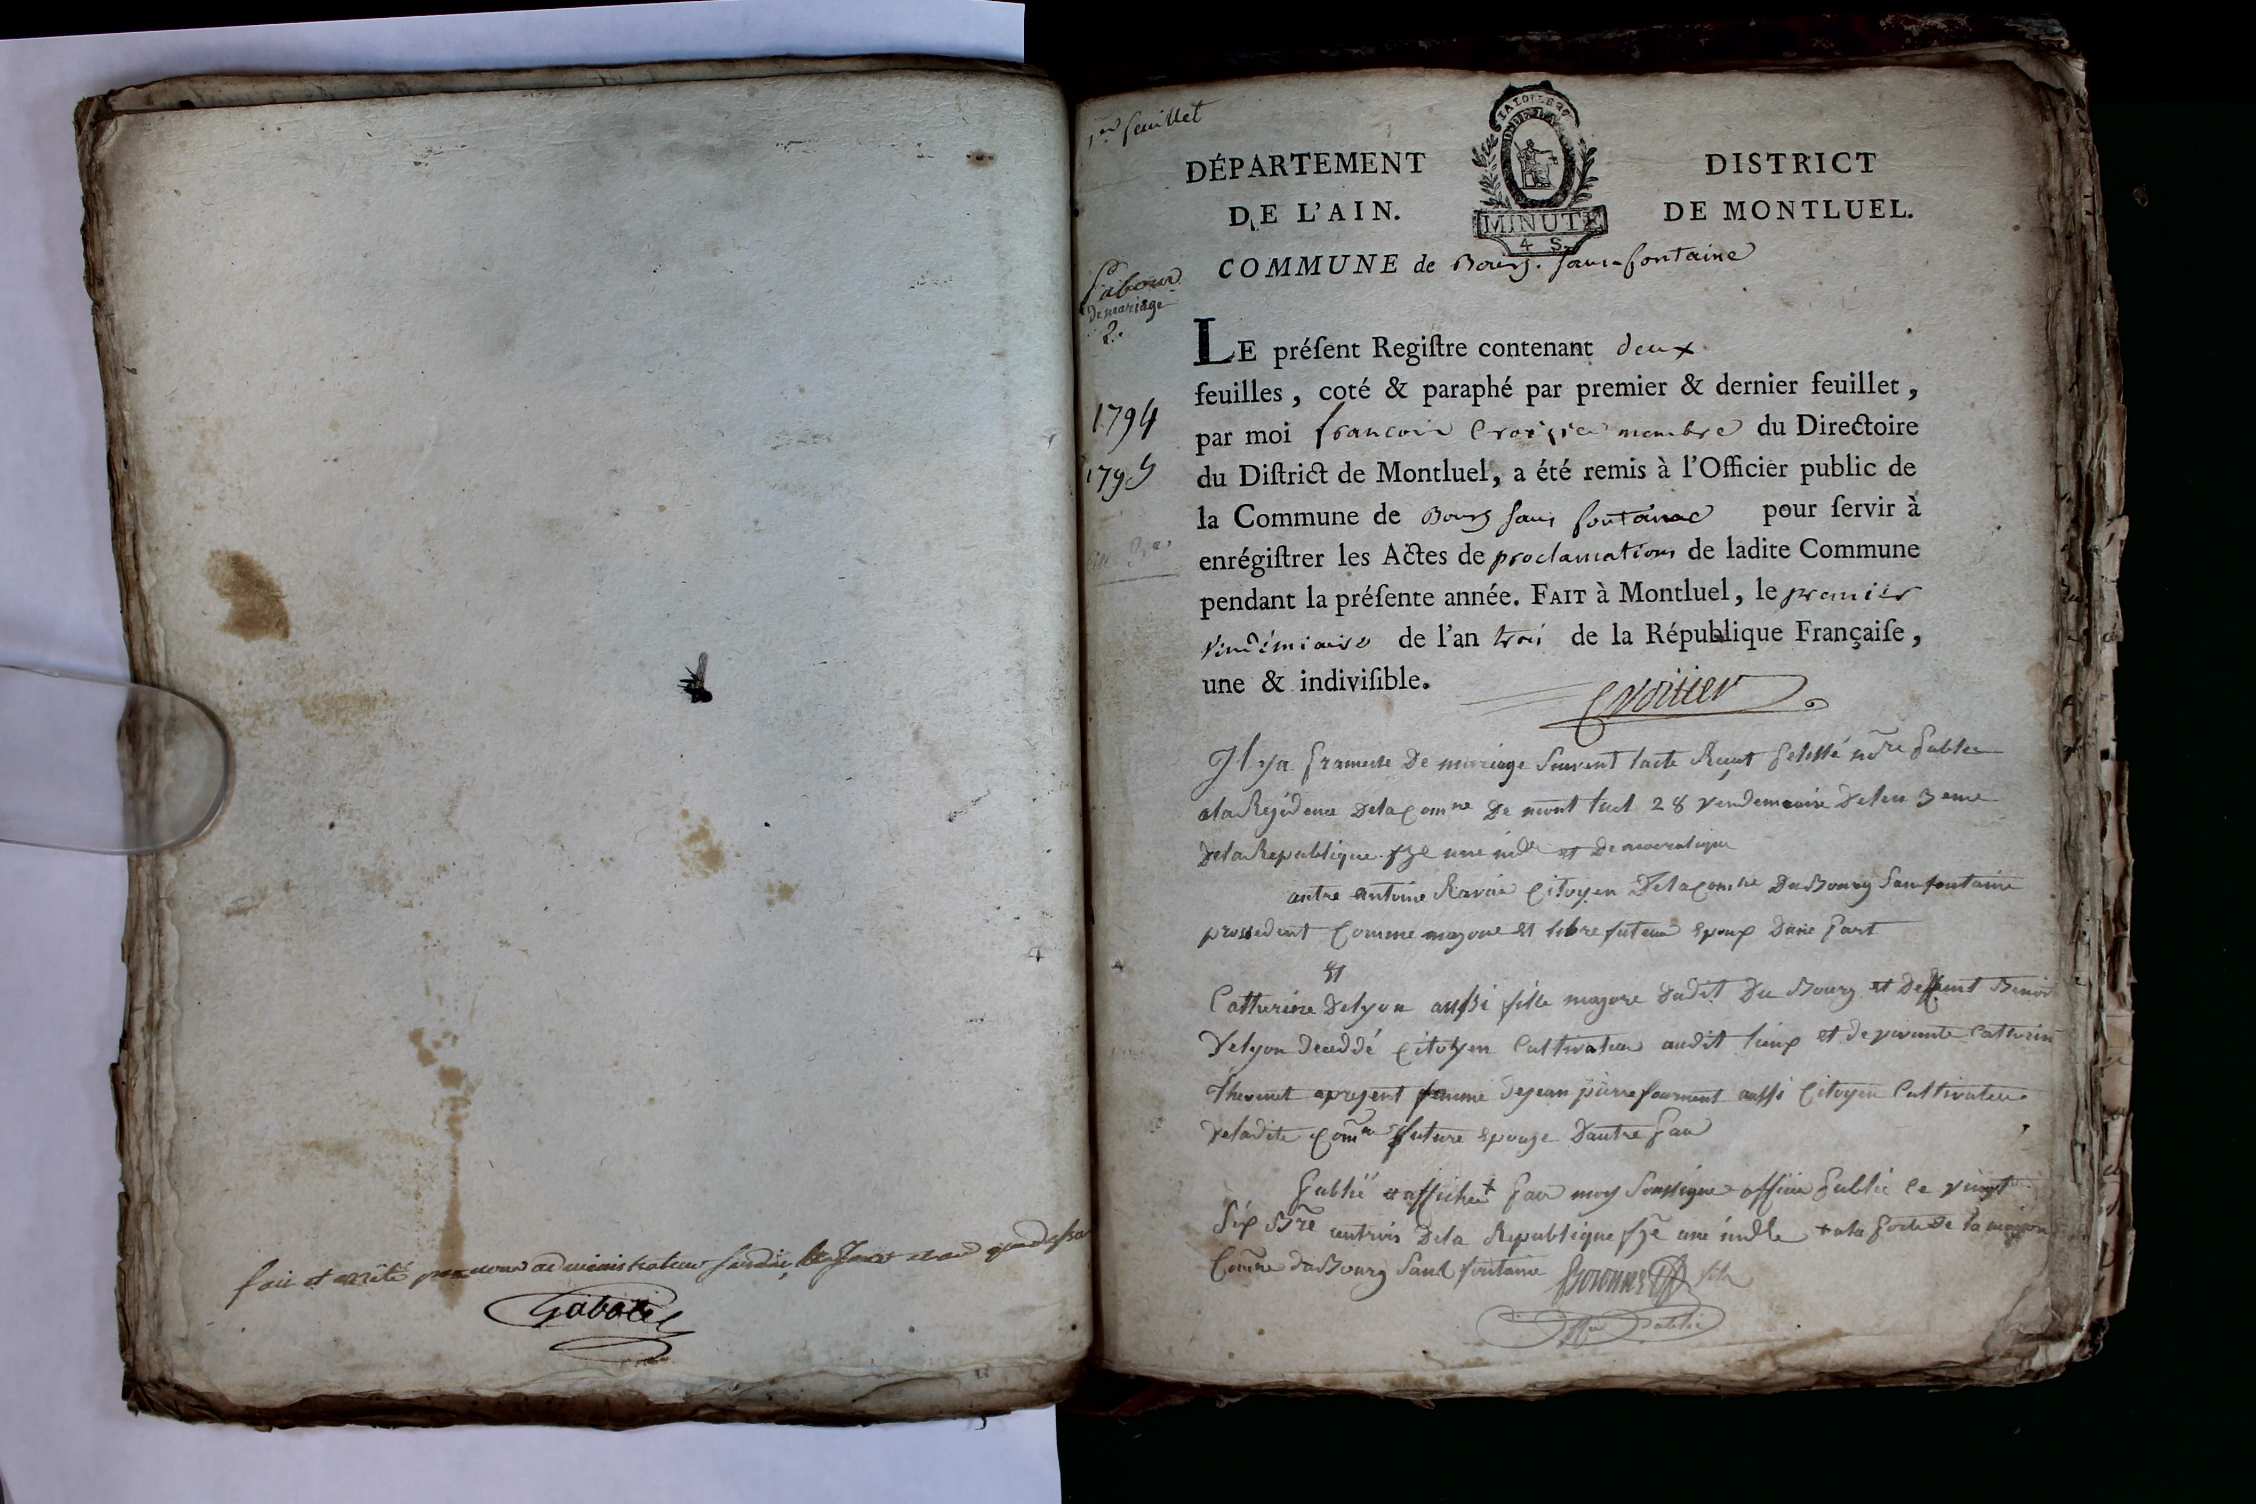 fait et arrêté par nous administrateur
Gabotel
1er feuillet
LA LOI LE ROI
MINUTE
4 S
DÉPARTEMENT
DE L'AIN.
DISTRICT
DE MONTLUEL.
COMMUNE de Bourg. sans fontaine
de mariage
2.
1794
1795
LE préſent Regiſtre contenant deux
feuilles, coté & paraphé par premier & dernier feuillet,
par moi francois membre du Directoire
du Diſtrict de Montluel, a été remis à l'Officier public de
la Commune de Bourg sans fontaine pour ſervir à
enrégiſtrer les Actes de proclamations de ladite Commune
pendant la préſente année. FAIT à Montluel, le premier
vendémiaire de l'an trois de la République Françaiſe,
une & indiviſible.
Il ya promesse De mariage suivant lacte Reçut
ala Residence Delacomne De mont luel 28 vendemaire Delan 3eme
Dela Republique fse une indle et Democratique
antre antoine Ravai Citoyen Delacomne DuBourg San fontaine
prossedent Comme majour et libre futeur epoux Dune part
et
Catherine Delyon aussi fille majore dudit Du Bourg et Deffunt Benoit
Delyon deceddé Citoyen Cultivateur audit lieux et de vivante Catterin
Thevenet apresent femme dejean pierre fournent aussi Citoyen Cultivateur
deladite Comne future epouze Dautre par
publié et affiche + par moy soussigne officie public le vingt
six Bre antrois Dela Republique fse une indle + ala porte De la maison
Comne DuBourg Sant fontaine fils
public